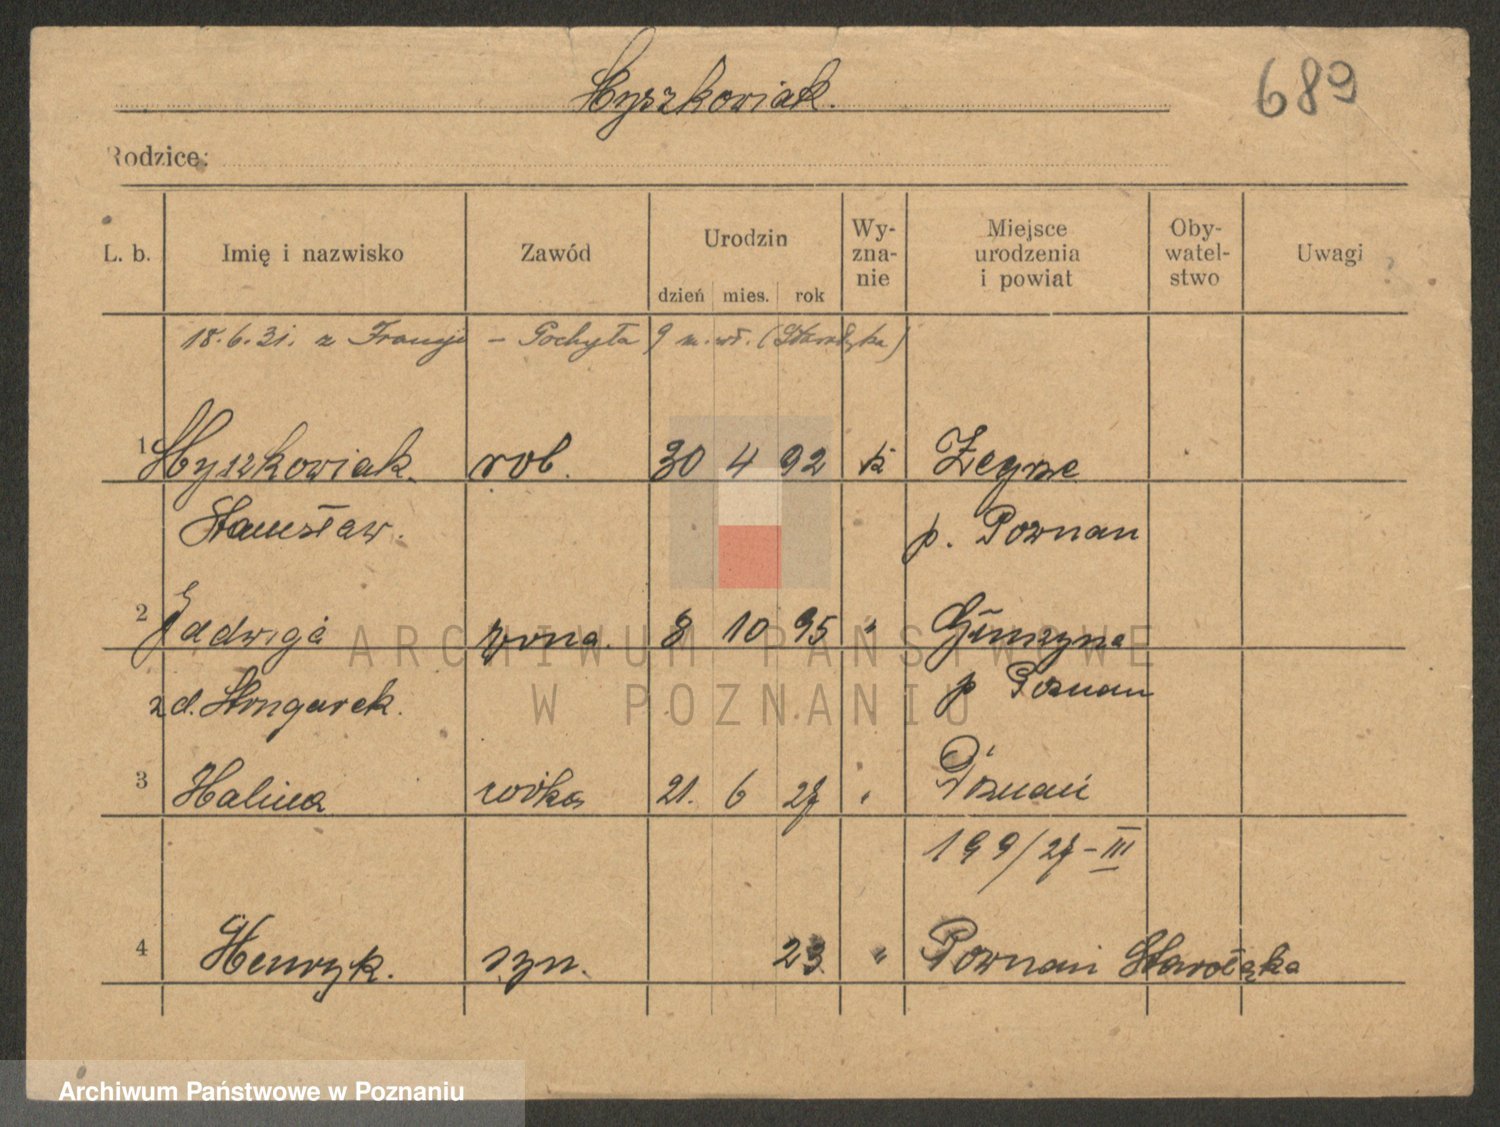 Hyszkowiak.
689
Rodzice:
L. b. Imię i nazwisko Zawód Urodzin Wy-zna-nie Miejsce urodzenia i powiat Oby-watel-stwo Uwagi
dzień mies. rok
18.6.31. z Francji - Pochyła 9 m. wł. (Starołęka)
1 Hyszkowiak. rob. 30 4 92 k Żegrze
Stanisław. p. Poznan
2 Jadwiga żona. 8 10 95 "
p Poznan
3 Halina córka 21. 6 27 " Poznań
199/27-III
4 Henryk. syn. 23 " Poznań Starołęka
ARCHIWUM PAŃSTWOWE
W POZNANIU
Archiwum Państwowe w Poznaniu